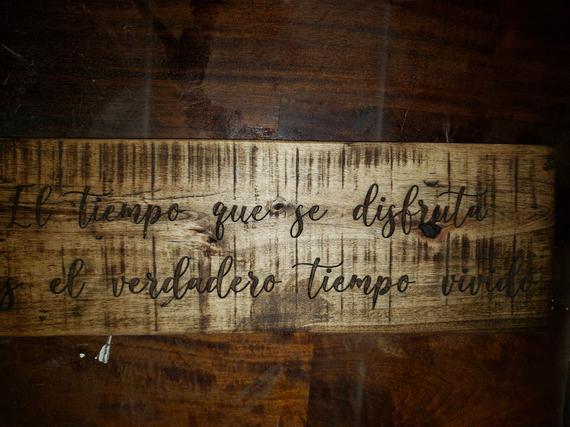 El tiempo que se disfruta
s el verdadero tiempo vivido